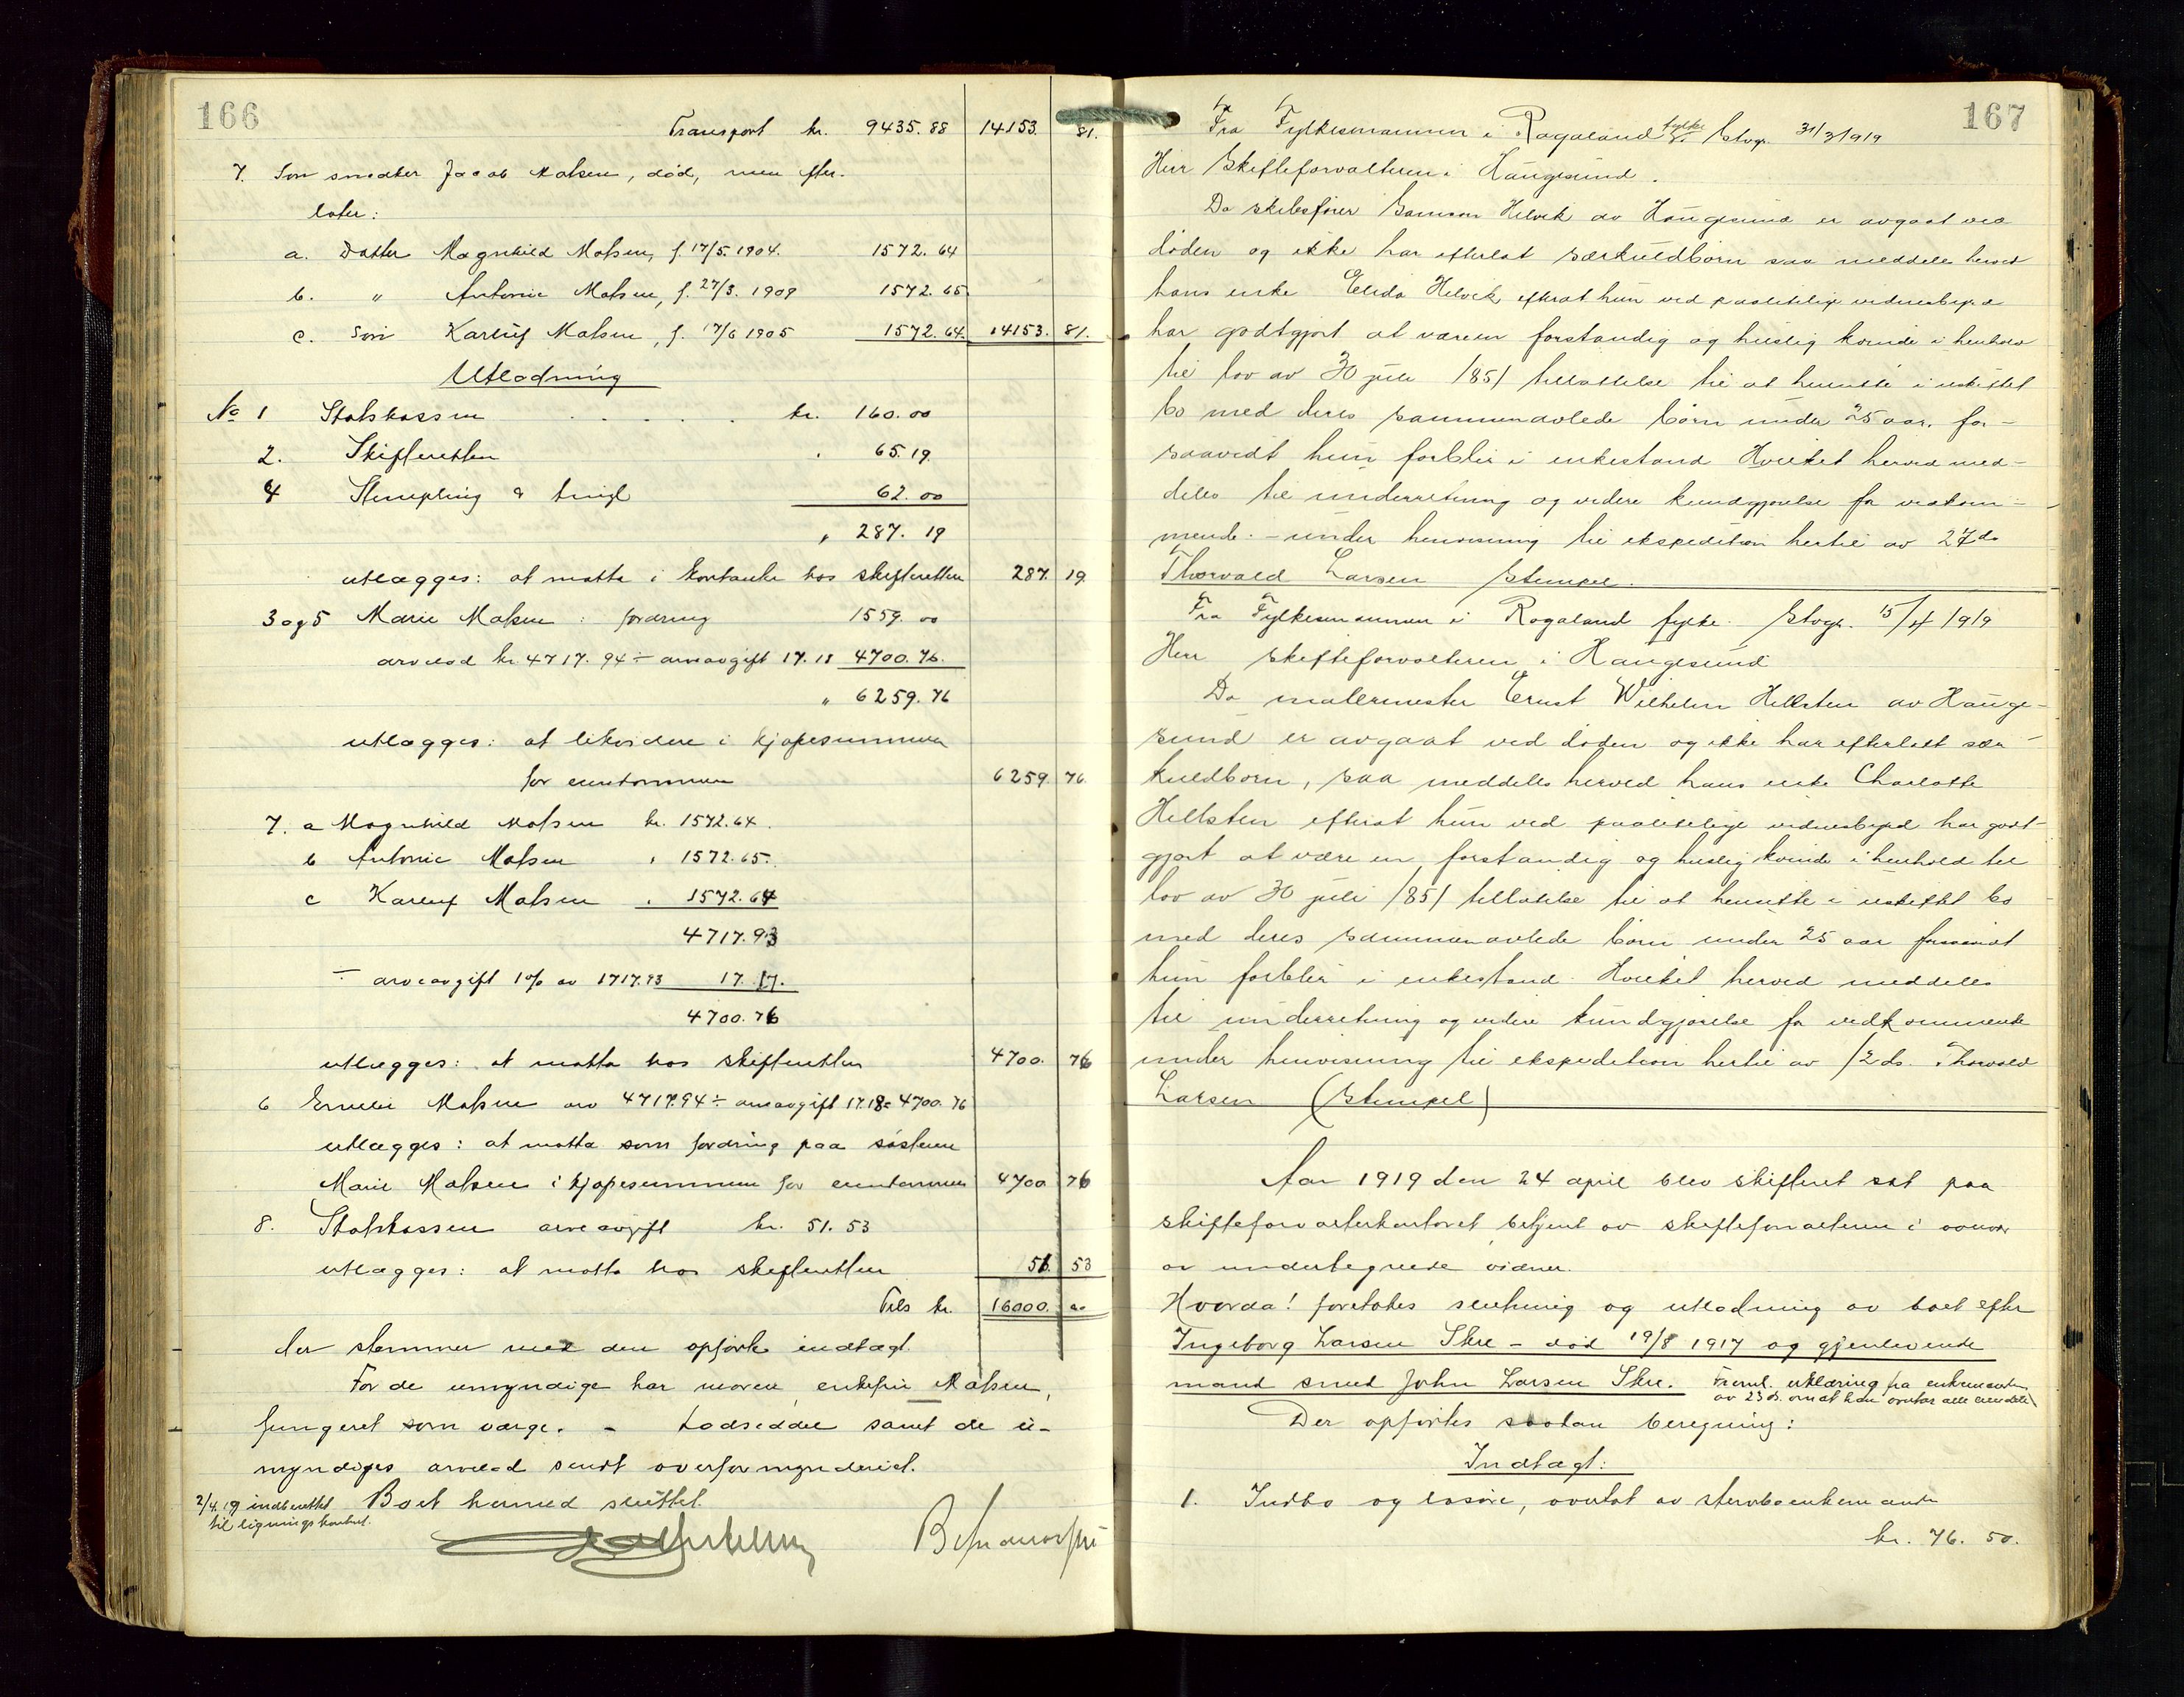 166
Transport kr. 9435.88 14153. 81.
7. Søn snedker Jacob Matsen, død, men efter-
later:
a. Datter Magnhild Matsen, f. 17/5. 1904. 1572.64
b. " Antonie Matsen, f. 27/3. 1909 1572.65
c. Søn Karluf Matsen, f. 17/6 1905 1572.64. 14153. 81.
Utlodning
No 1 Statskassen . . . . . kr. 160.00
2. Skifteretten 65.19.
4 Stempling & tingl 62.00
" 287.19
utlægges: at motta i kontanter hos skifteretten 287. 19.
3 og 5 Marie Matsen: fordring 1559.00
arvelod kr. 4717.94 ÷ arveavgift 17.18 4700.76.
" 6259.76
utlægges: at likvidere i kjøpesummen
for eiendommen 6259. 76.
7. a Magnhild Matsen kr. 1572.64.
b Antonie Matsen " 1572.65.
c Karluf Matsen " 1572.64
4717.93
÷ arveavgift 1% av 1717.93 17.17.
4700.76
utlægges: at motta hos skifteretten 4700. 76
6 Emilie Matsen arv 4717.94 ÷ arveavgift 17.18 = 4700.76
utlægges: at motta som fordring paa søsteren
Marie Matsen i kjøpesummen for eiendommen 4700 76
8. Statskassen arveavgift kr. 51.53
utlægges: at motta hos skifteretten 51. 53
Tils kr. 16000. 00
der stemmer med den opførte indtægt.
For de umyndige har moren, enkefru Matsen,
fungeret som værge. - Lodseddel samt de u-
myndiges arvelod sendt overformynderiet.
2/4.19 indberettet Boet hermed sluttet.
til ligningskontoret.
167
Fra Fylkesmannen i Rogaland fylke Stvgr. 31/3 1919
Herr Skifteforvalteren i Haugesund.
Da skibsfører Samson Helvik av Haugesund er avgaat ved
døden og ikke har efterlat særkuldbørn saa meddeles herved
hans enke Elida Helvik, efterat hun ved paalitelige vidnesbyrd
har godtgjort at være en forstandig og huslig kvinde i henhold
til lov av 30 juli 1851 tillatelse til at hensitte i uskiftet
bo med deres sammenavlede børn under 25 aar, for-
saavidt hun forblir i enkestand. Hvilket herved med-
deles til underretning og videre kundgjørelse for vedkom-
mende. - under henvisning til ekspedition hertil av 27 ds
Thorvald Larsen Stempel.
Fra Fylkesmannen i Rogaland fylke. Stvgr. 15/4 1919
Herr skifteforvalteren i Haugesund
Da malermester Ernst Wilhelm Hellsten av Hauge-
sund er avgaat ved døden og ikke har efterlatt sær-
kuldbørn, saa meddeles herved hans enke Charlotte
Hellsten efterat hun ved paalitelige vidnesbyrd har godt-
gjort at være en forstandig og huslig kvinde i henhold til
lov av 30 juli 1851 tillatelse til at hensitte i uskiftet bo
med deres sammenavlede børn under 25 aar forsaavidt
hun forblir i enkestand. Hvilket herved meddeles
til underretning og videre kundgjørelse for vedkommende
under henvisning til ekspedition hertil av 12 ds. Thorvald
Larsen (Stempel)
Aar 1919 den 24 april blev skifteret sat paa
skifteforvalterkontoret, betjent av skifteforvalteren i overvær
av undertegnede vidner.
Hvorda! foretokes slutning og utlodning av boet efter
Ingeborg Larsen Skre - død 19/8 1917 og gjenlevende
mand smed John Larsen Skre. Freml. erklæring fra enkemanden
av 23 ds. om at han overtar alle eiendele
Der opførtes saadan beregning:
Indtægt:
1. Indbo og løsøre, overtat av stervboenkemanden
kr. 76.50.